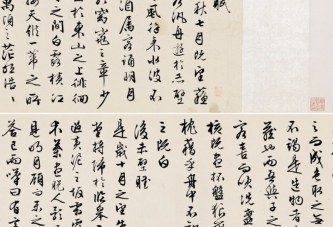 賦
秋七月既望蘇
汎舟遊於赤壁
風徐來水波不
酒屬客誦明月
窈窕之章少
於東山之上徘徊
之間白露橫江
天縱一葦之所
萬頃之茫然浩
之而成色取之
不竭是造物者
藏也而吾與子之
客喜而笑洗盞
核既盡杯盤狼
枕藉乎舟中不
之既白
後赤壁賦
是歲十月之望
堂將歸於臨皋
過黃泥之坂霜露
木葉盡脫人影
見明月顧而樂之
答已而嘆曰有